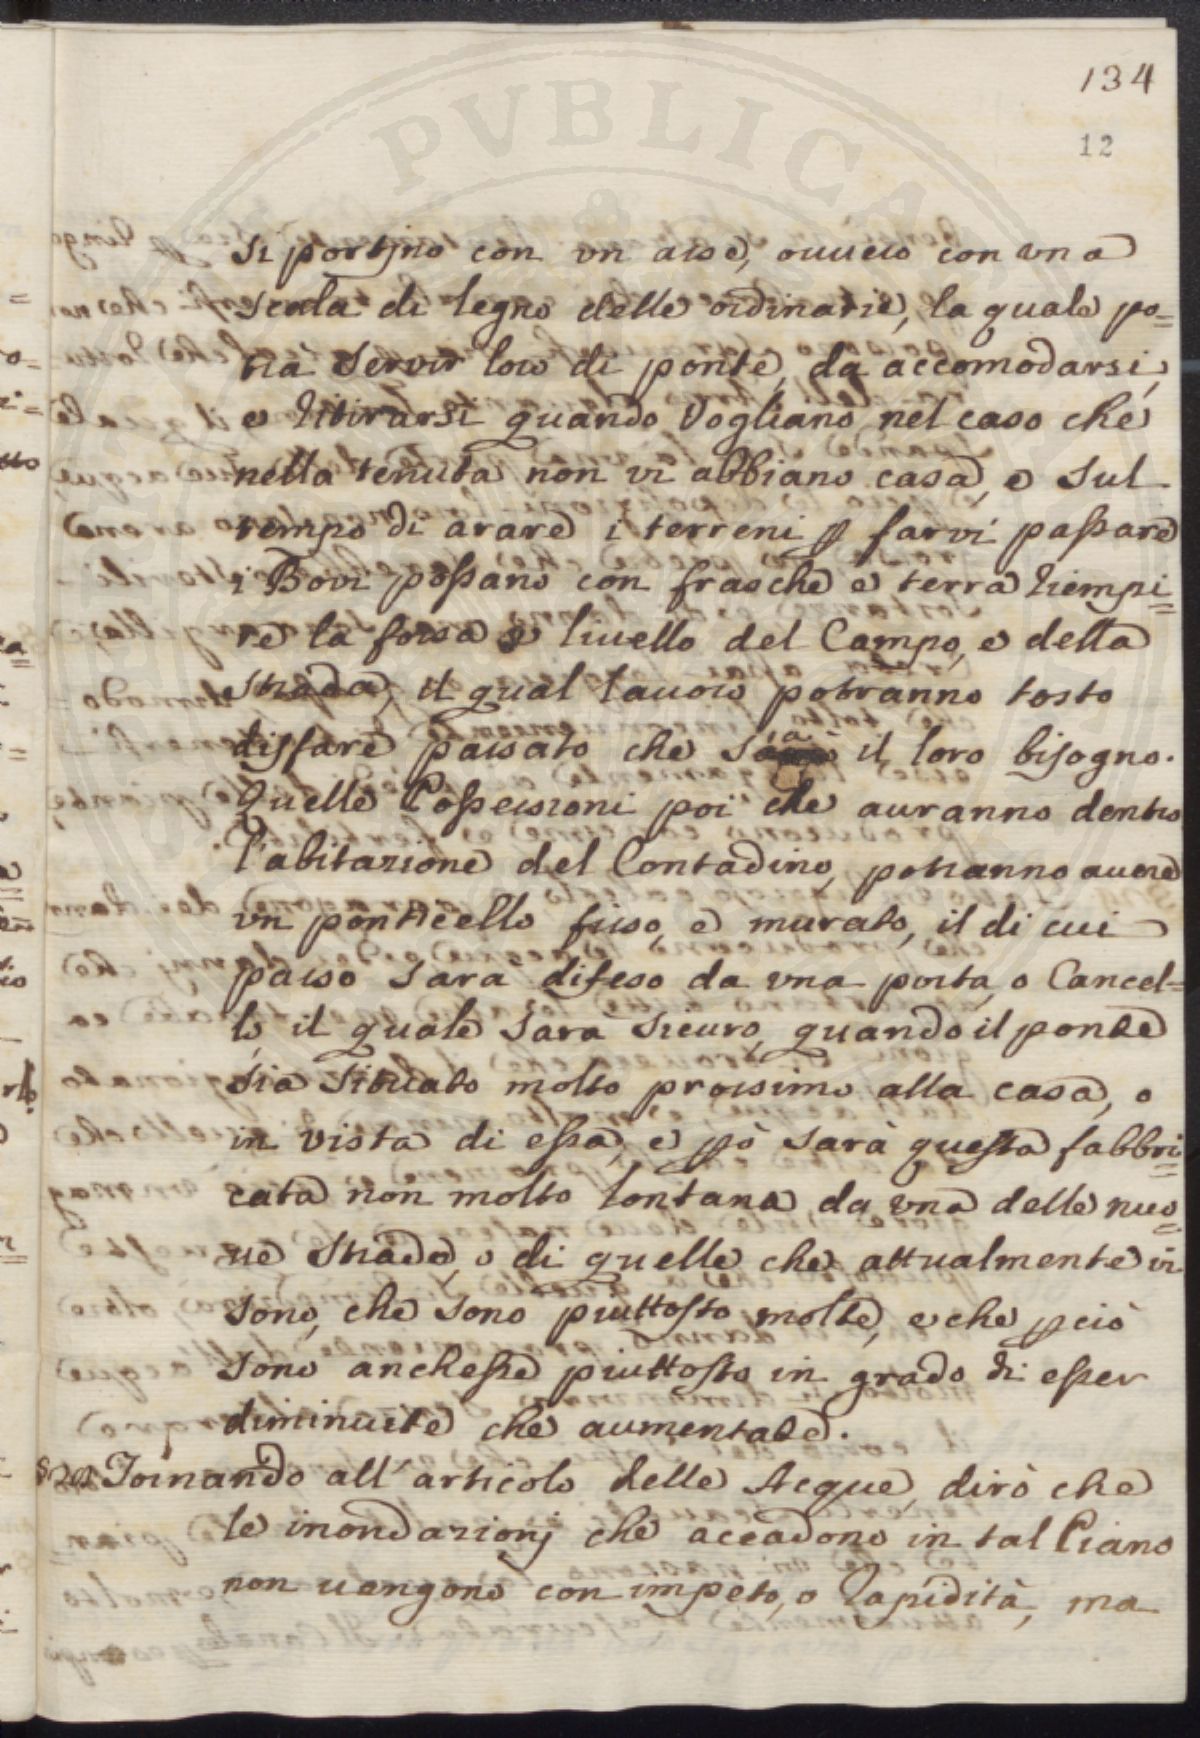 134
12
si portino con un asse, ouuero con una
scala di legno delle ordinarie, la quale po=
trà servir loro di ponte, da accomodarsi,
e ritirarsi quando vogliano, nel caso che
nella tenuta non vi abbiano casa, e sul
tempo di arare i terreni p farvi passare
i Bovi possano con frasche e terra riempi=
re la fossa a liuello del Campo, e della
strada, il qual lauoro potranno tosto
disfare passato che sarà il loro bisogno.
Quelle Possessioni poi che auranno dentro
l'abitazione del Contadino, potranno auere
un ponticello fisso, e murato, il di cui
passo sara difeso da una porta, o Cancel=
lo il quale sara sicuro, quando il ponte
sia situato molto prossimo alla casa, o
in vista di essa, e pò sarà questa fabbri=
cata non molto lontana da una delle nuo=
ue strade, o di quelle che attualmente vi
sono, che sono piuttosto molte, e che pciò
sono anchesse piuttosto in grado di esser
diminuite che aumentate.
Tornando all'articolo delle Acque, dirò che
le inondazionj che accadono in tal Piano
non uengono con impeto, o rapidità, ma
PVBLICA